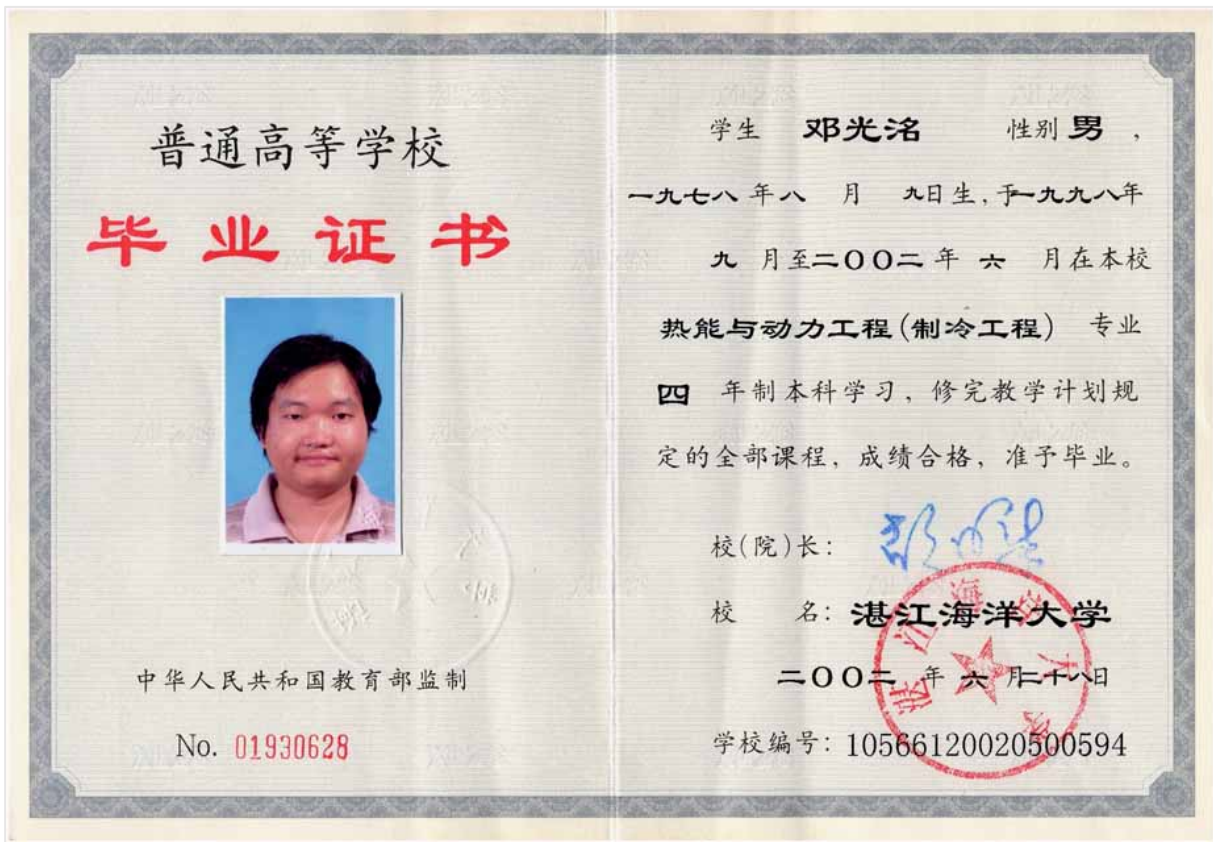 普通高等学校
毕业证书
中华人民共和国教育部监制
No. 01930628
学生 邓光洺 性别 男 ，
一九七八 年 八 月 九日生，于一九九八年
九 月至二〇〇二 年 六 月在本校
热能与动力工程(制冷工程) 专业
四 年制本科学习，修完教学计划规
定的全部课程，成绩合格，准予毕业。
校(院)长：
校 名：湛江海洋大学
二〇〇二 年 六 月二十八日
学校编号：10566120020500594
湛江海洋大学